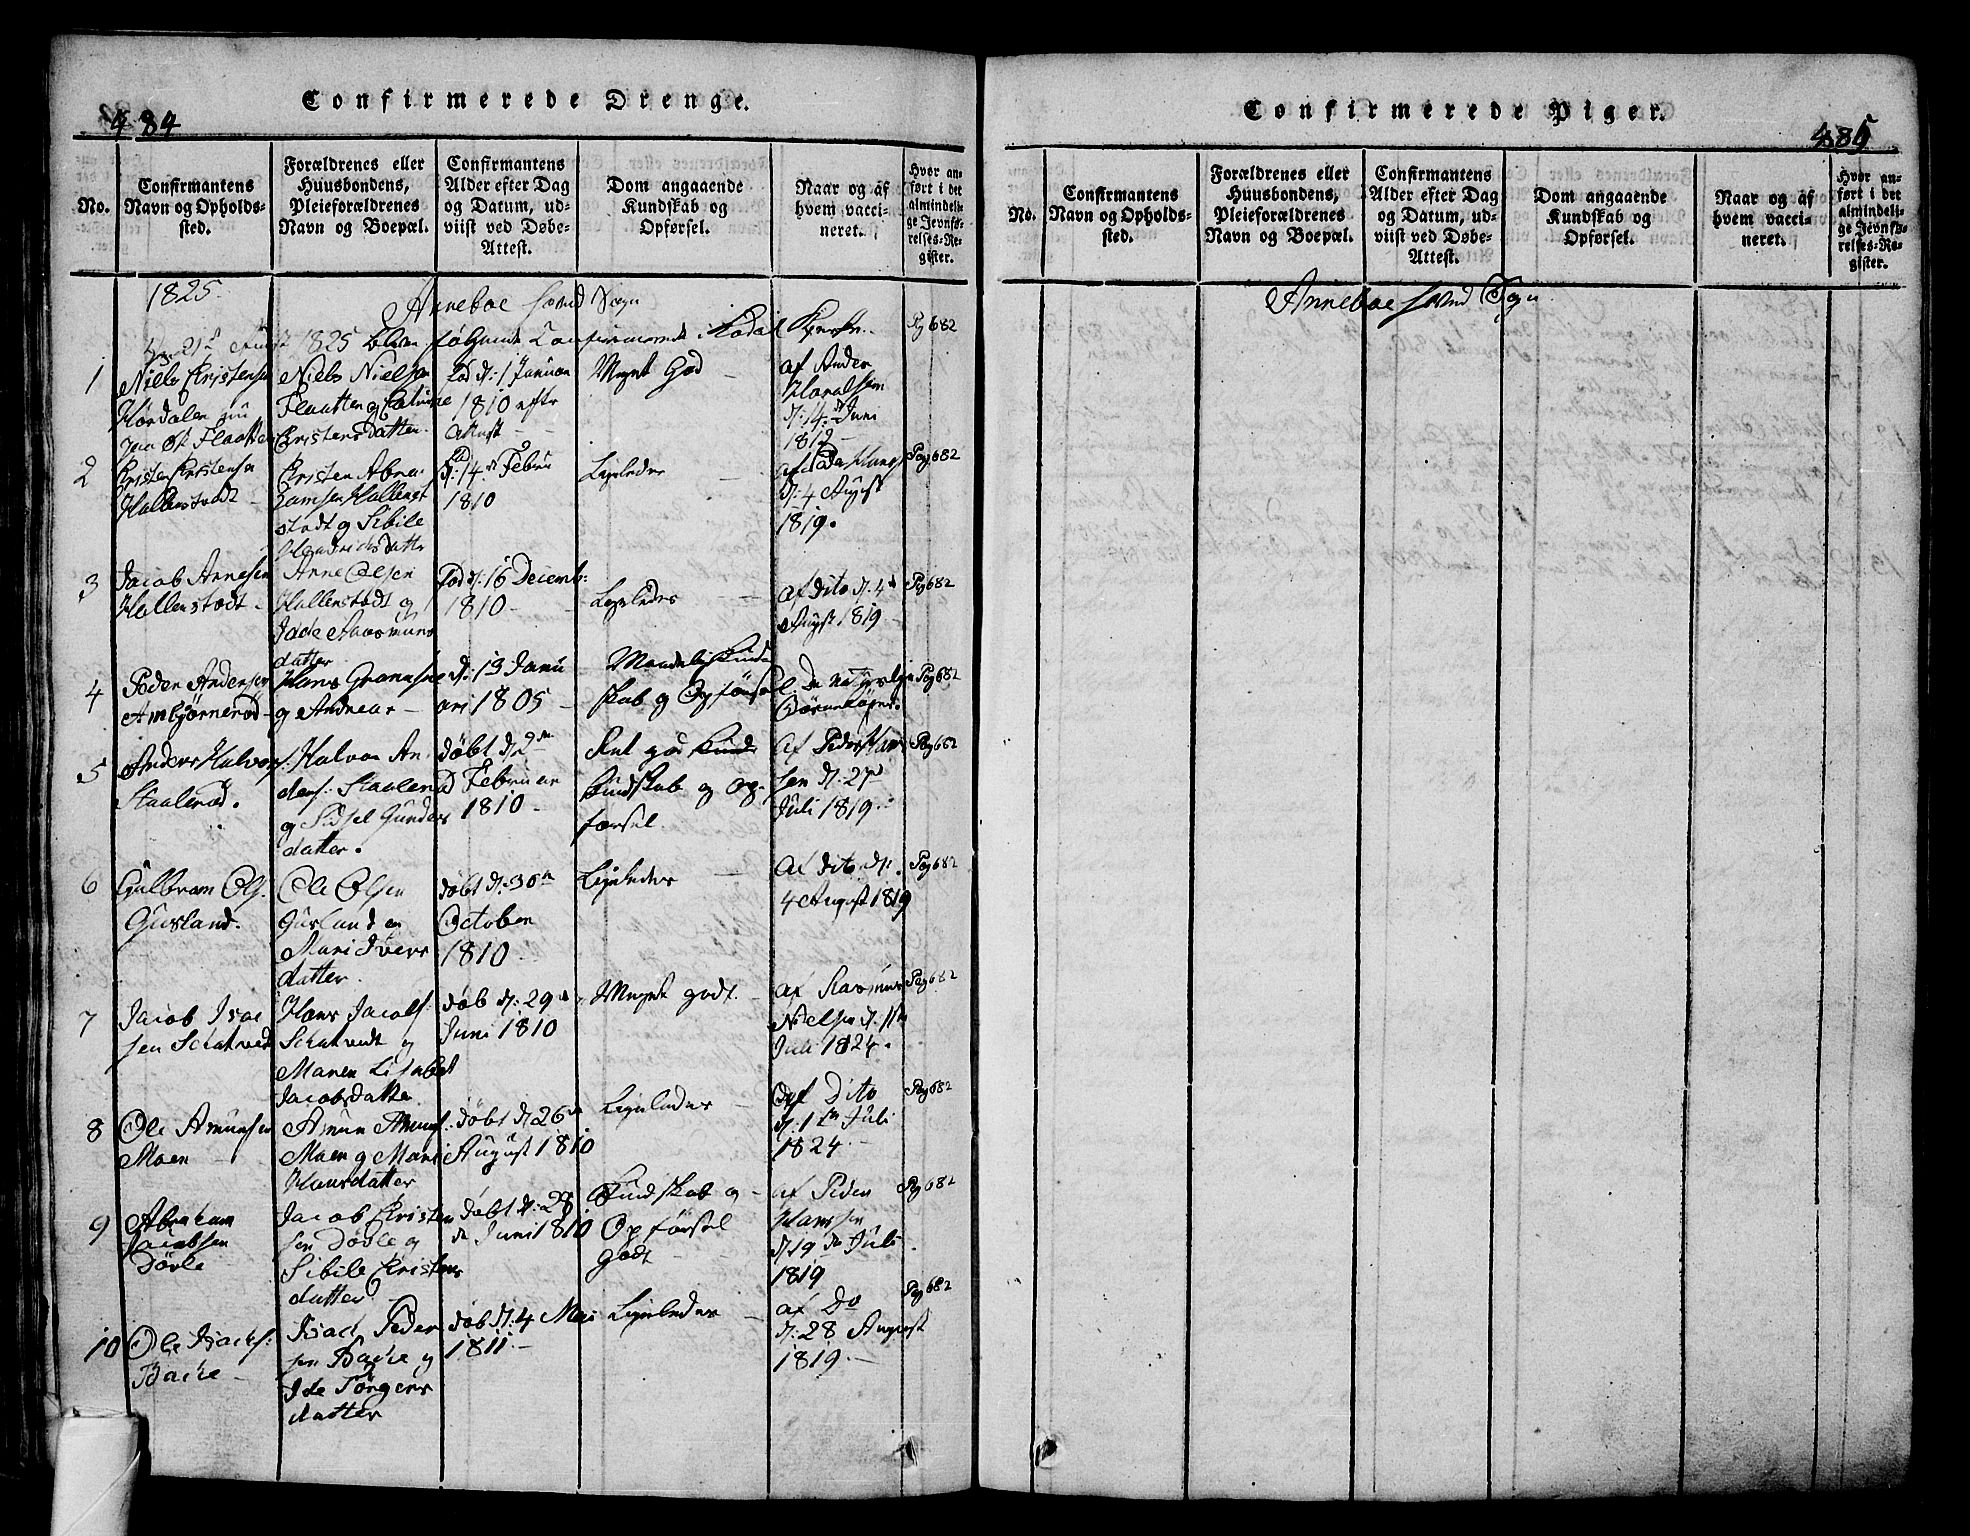 Confirmerede Drenge.
484
No.
Confirmantens
Navn og Opholds-
sted.
Forældrenes eller
Huusbondens,
Pleieforældrenes
Navn og Boepæl.
Confirmantens
Alder efter Dag
og Datum, ud-
viist ved Døbe-
Attest.
Dom angaaende
Kundskab og
Opførsel.
Naar og af
hvem vacci-
neret.
Hvor an-
ført i det
almindeli-
ge Jevnfø-
relses-Re-
gister.
1825.
Anneboe Sogn
1825 bleven følgende Confirmerede i Kodal Kirke
Pg 682
1
Niels Christensen
Niels Nielsen
Flaatten og
Christensdatter.
Fød d: 1 Januar
1810 efter
Attest
Meget God
af Ander
Haraldsen
d: 14de Juni
1812
2
Christen Christensen
Hallenstvedt
Christen Abra-
hamsen Hallenst
stvedt og Sibile
Hendrichsdatter
d: 14de Febru
1810
Ligeledes
d: 4 August
1819.
Pag 682
3
Jacob Arnesen
Hallenstvedt
Arne Olsen
Hallenstvedt og
Idde Aasmuns
datter
Fød d: 16 Decemb:
1810
Ligeledes
af dito d: 4de
August 1819
Pg 682
4
Peder Andersen
Ambjørnerød
Hans
og Andrea
d: 13 Janu
ari 1805
Maadelig Kund
skab og Opførsel
De naturlige
Børnekopper.
Pag 682
5
Anders Halvors:
Staalerød.
Halvor An-
ders: Staalerød
og Sidsel Gunders
datter.
døbt d: 2den
Februar
1810
Ret god Kund
Kundskab og Op-
førsel.
Af Peder Han
sen d: 27de
Juli 1819
Pag 682
6
Gulbram Ols:
Gusland.
Ole Olsen
Gusland og
Mari Ivers
datter.
døbt d: 30te
October
1810
Ligeledes
af dito d:
4 August 1819
Pag 682
7
Jacob Isac
sen Schatvedt
Hans Jacobs:
Schatvedt og
Maren Lisabet
Jacobsdatter
døb d: 29de
Juni 1810
Meget godt.
af Rasmus
Nielsen d: 11te
Juli 1824.
Pag 682
8
Ole Amunsen
Moen
Amun Amuns:
Moen og Mari
Hansdatter
døbt d: 26de
August 1810
Ligeledes
af Dito
d: 1te Juli
1824
Pag 682
9
Abraham
Jacobsen
Døvle
Jacob Christen
sen Døvle og
Sibile Christens
datter
døbt d: 28
de Juni 1810
Kundskab og
Opførsel
godt
af Peder
Hansen
d: 19de Juli
1819
Pag 682
10
Ole Isachs:
Bache
Isach Peder
sen Bache og
Ide Jørgens
datter
døb d: 4 Mai
1811
Ligeledes
af Do
d: 28 August
1819
Pag 682
Confirmerede Piger.
485
No.
Confirmantens
Navn og Opholds-
sted.
Forældrenes eller
Huusbondens,
Pleieforældrenes
Navn og Boepæl.
Confirmantens
Alder efter Dag
og Datum, ud-
viist ved Døbe-
Attest.
Dom angaaende
Kundskab og
Opførsel.
Naar og af
hvem vacci-
neret.
Hvor an-
ført i det
almindeli-
ge Jevnfø-
relses-Re-
gister.
Anneboe Sogn